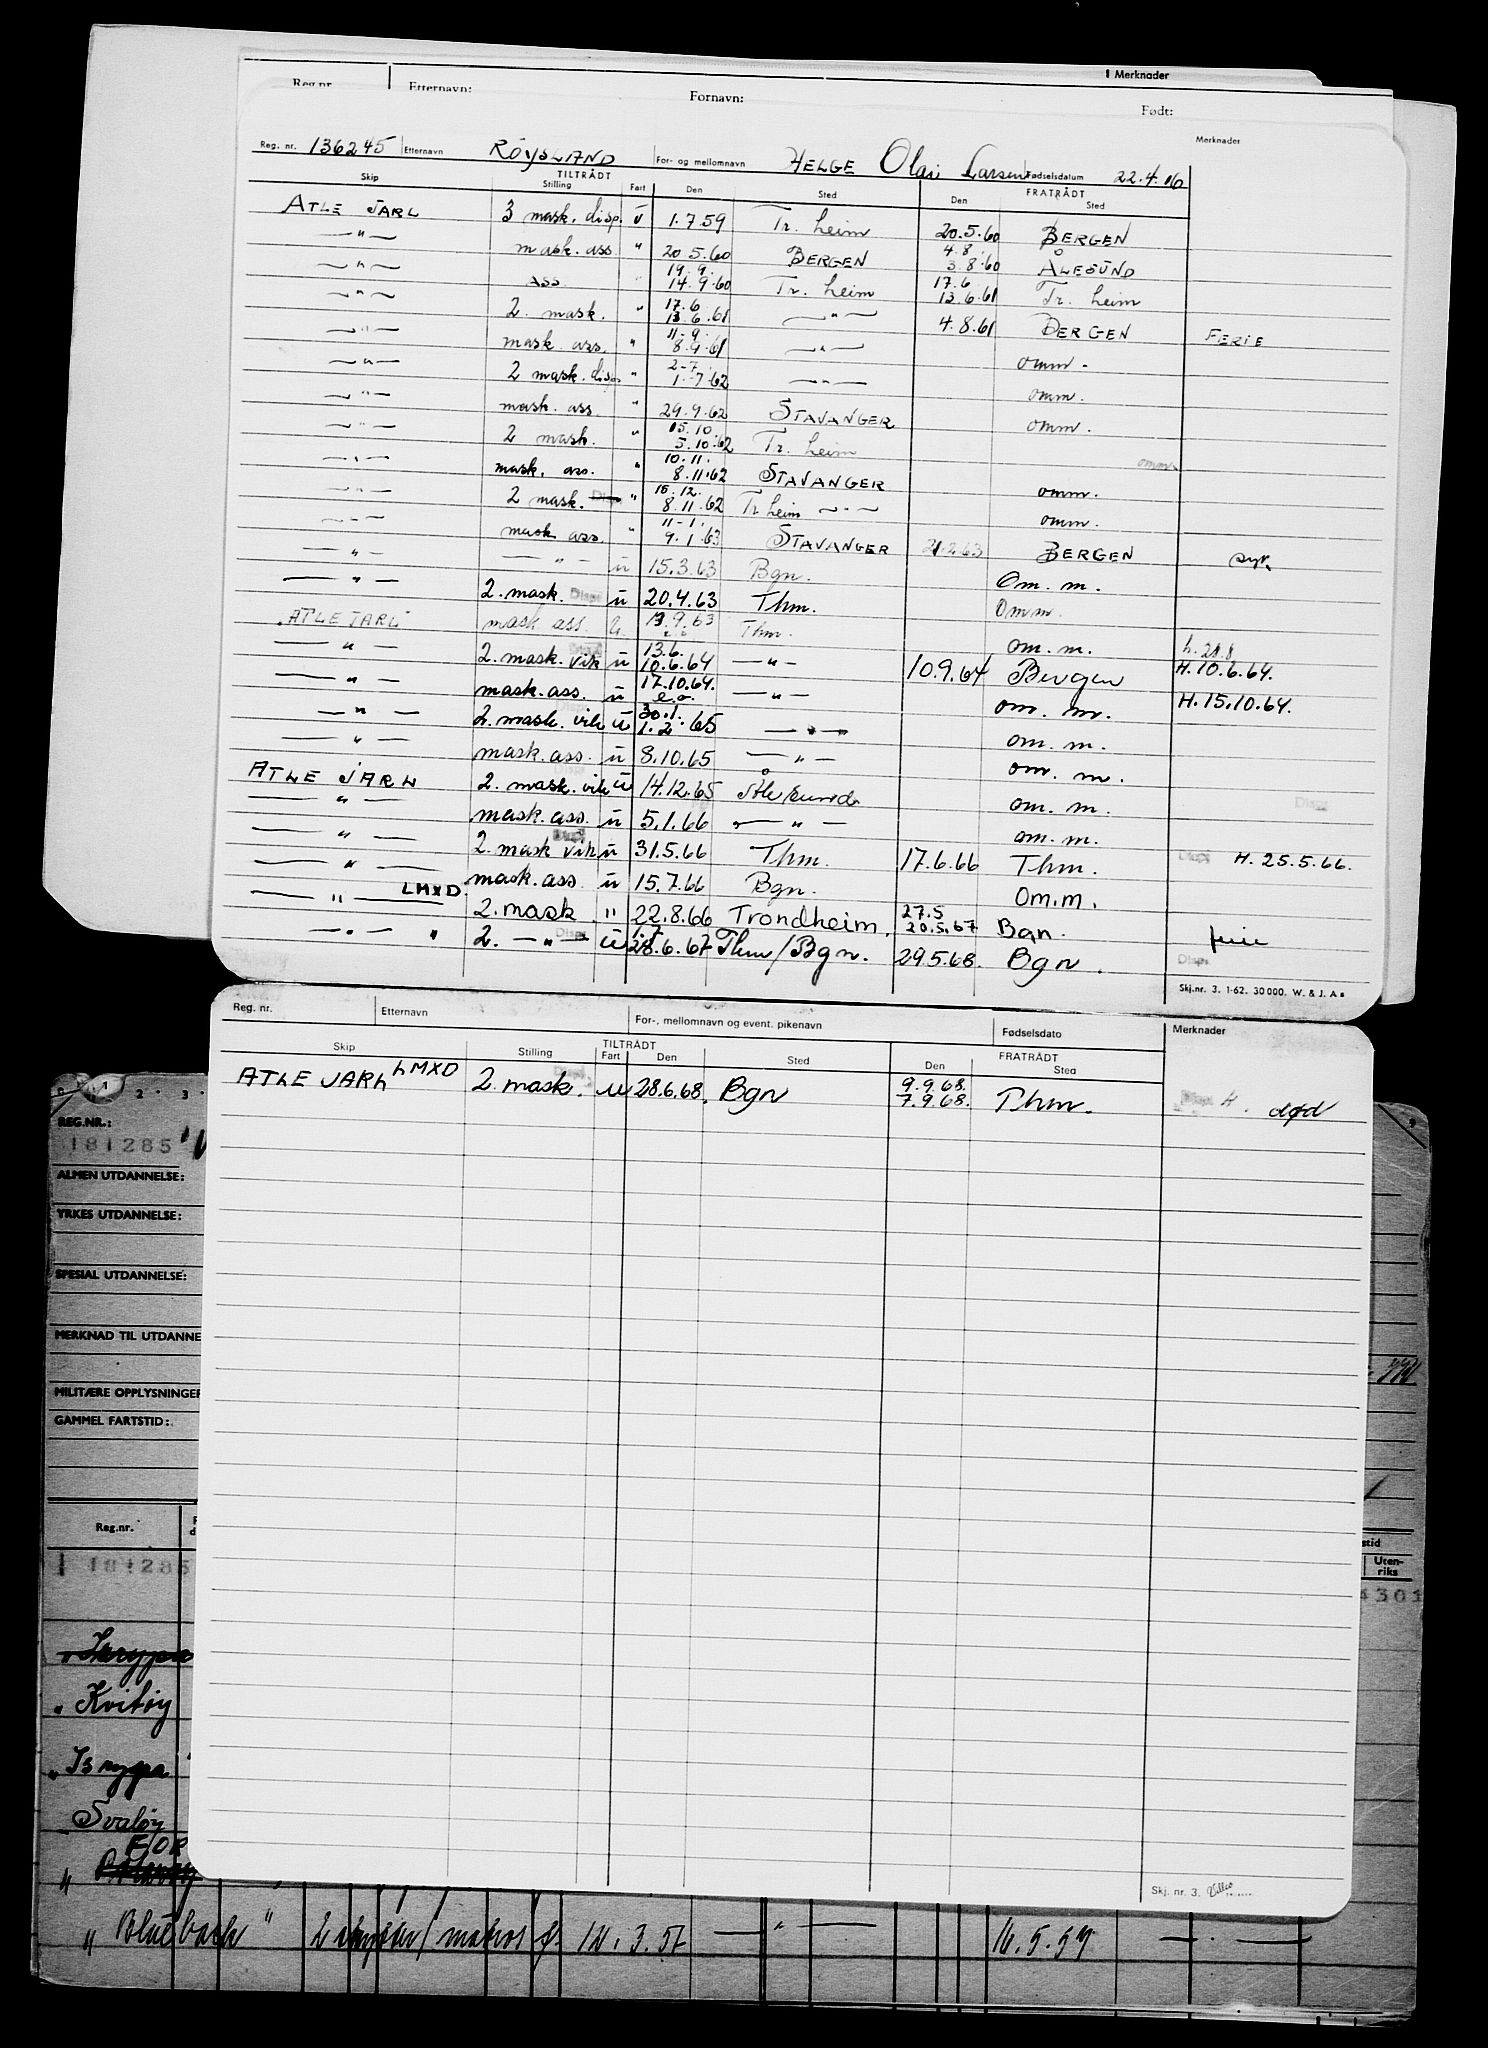 Merknader
Reg.nr. Etternavn: Fornavn: Født:
Reg. nr. 136245 Etternavn RÖYSLAND For- og mellomnavn HELGE Olai Larsen Fødselsdatum 22.4.16 Merknader
TILTRÅDT FRATRÅDT
Skip Stilling Fart Den Sted Den Sted
ATLE JARL 3 mask. disp. ü 1.7.59 Tr. heim 20.5.60 BERGEN
—"— mask. ass " 20.5.60 BERGEN 4.8. 3.8.60 ÅLESUND
—"— ass " 19.9. 14.9.60 Tr. heim 17.6 13.6.61 Tr. heim
—"— 2. mask. " 17.6 13.6.61 —"— 4.8.61 BERGEN FERIE
—"— mask. ass. " 11-9. 8.9.61 —"— omm.
—"— 2 mask. disp. " 2-7. 1.7.62 —"— omm.
—"— mask. ass. " 29.9.62 STAVANGER omm.
—"— 2 mask. " 15.10 5.10.62 Tr. heim omm.
—"— mask. ass. " 10.11. 8.11.62 STAVANGER omm.
—"— 2 mask. " 15.12. 8.11.62 Tr heim —"— omm.
—"— mask ass. " 11-1. 9.1.63 STAVANGER 21.2.63 BERGEN syk.
—"— —"— ü 15.3.63 Bgn. Om. m.
—"— 2. mask. Disp. ü 20.4.63 Thm. Omm.
"ATLE JARL" mask ass ü 13.9.63 Thm. om. m. h. 28.8
—"— 2. mask. vik ü 13.6. 10.6.64 —"— 10.9.64 Bergen H. 10.6.64.
—"— mask. ass. ü 17.10.64. e.o. —"— om. m. H. 15.10.64.
—"— 2. mask. vik ü 30.1. 1.2.65 —"— om. m.
—"— mask. ass. ü 8.10.65 —"— om. m.
ATLE JARL 2. mask. vik ü 14.12.65 Ålesund om. m. Disp.
—"— mask. ass. ü 5.1.66 —"— om. m.
—"— 2. mask vik ü 31.5.66 Thm. 17.6.66 Thm. Disp. H. 25.5.66.
—"— mask. ass. ü 15.7.66 Bgn. Om.m.
—"— LMXD. 2. mask " 22.8.66 Trondheim. 27.5 20.5.67 Bgn. ferie
—"— " 2. —"— Disp. ü 28.6.67 Thm/Bgn. 29.5.68. Bgn. Disp.
Skj.nr. 3. 1-62. 30 000. W. & J. A s
Reg. nr. Etternavn For-, mellomnavn og event. pikenavn Fødselsdato Merknader
TILTRÅDT FRATRÅDT
Skip Stilling Fart Den Sted Den Sted
ATLE JARL LMXD 2. mask. u 28.6.68. Bgn 9.9.68. 7.9.68. Thm. H. død
Skj. nr. 3.
1 2 3
REG.NR.:
181285
ALMEN UTDANNELSE:
YRKES UTDANNELSE:
SPESIAL UTDANNELSE:
MERKNAD TIL UTDANNE
MILITÆRE OPPLYSNINGER
GAMMEL FARTSTID:
Reg.nr.
stid
Uten-
riks
181285
4301
" Kvitøy
" Isrypa
Svaløy
FOR
" Blueback " 2 skytter/matros f. 12.3.57 —"— 16.5.57 —"—